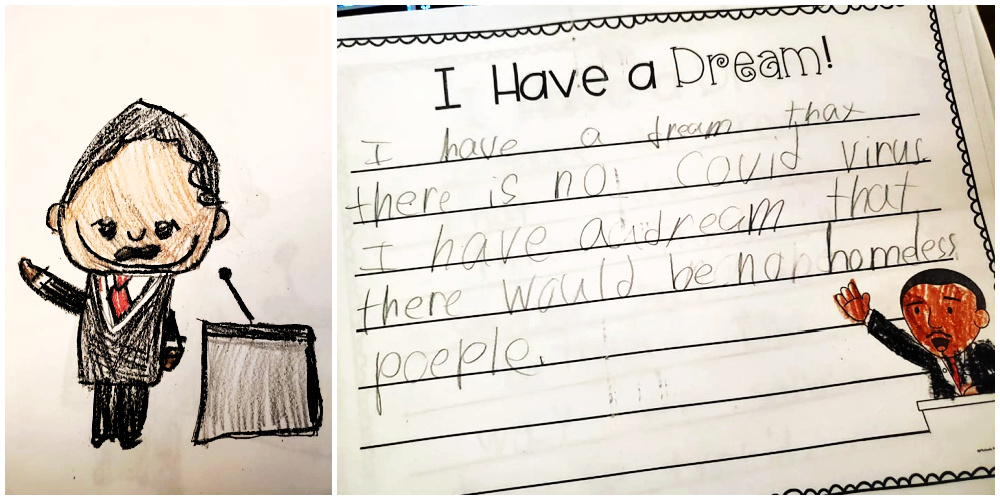 I Have a Dream!
I have a dream that
there is no Covid virus
I have a dream that
there would be no homeless
poeple.